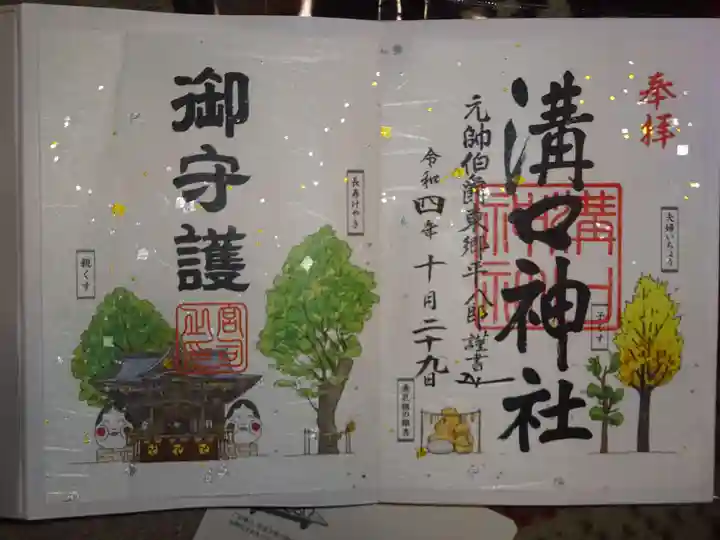 奉拝
夫婦いちょう
溝口神社
子くす
元帥伯爵東郷平八郎謹書
令和四年十月二十九日
御守護
長寿けやき
親くす
宮司之印